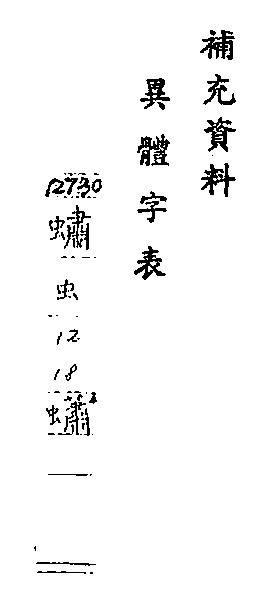 補充資料
異體字表
12730
蠨
虫
12
18